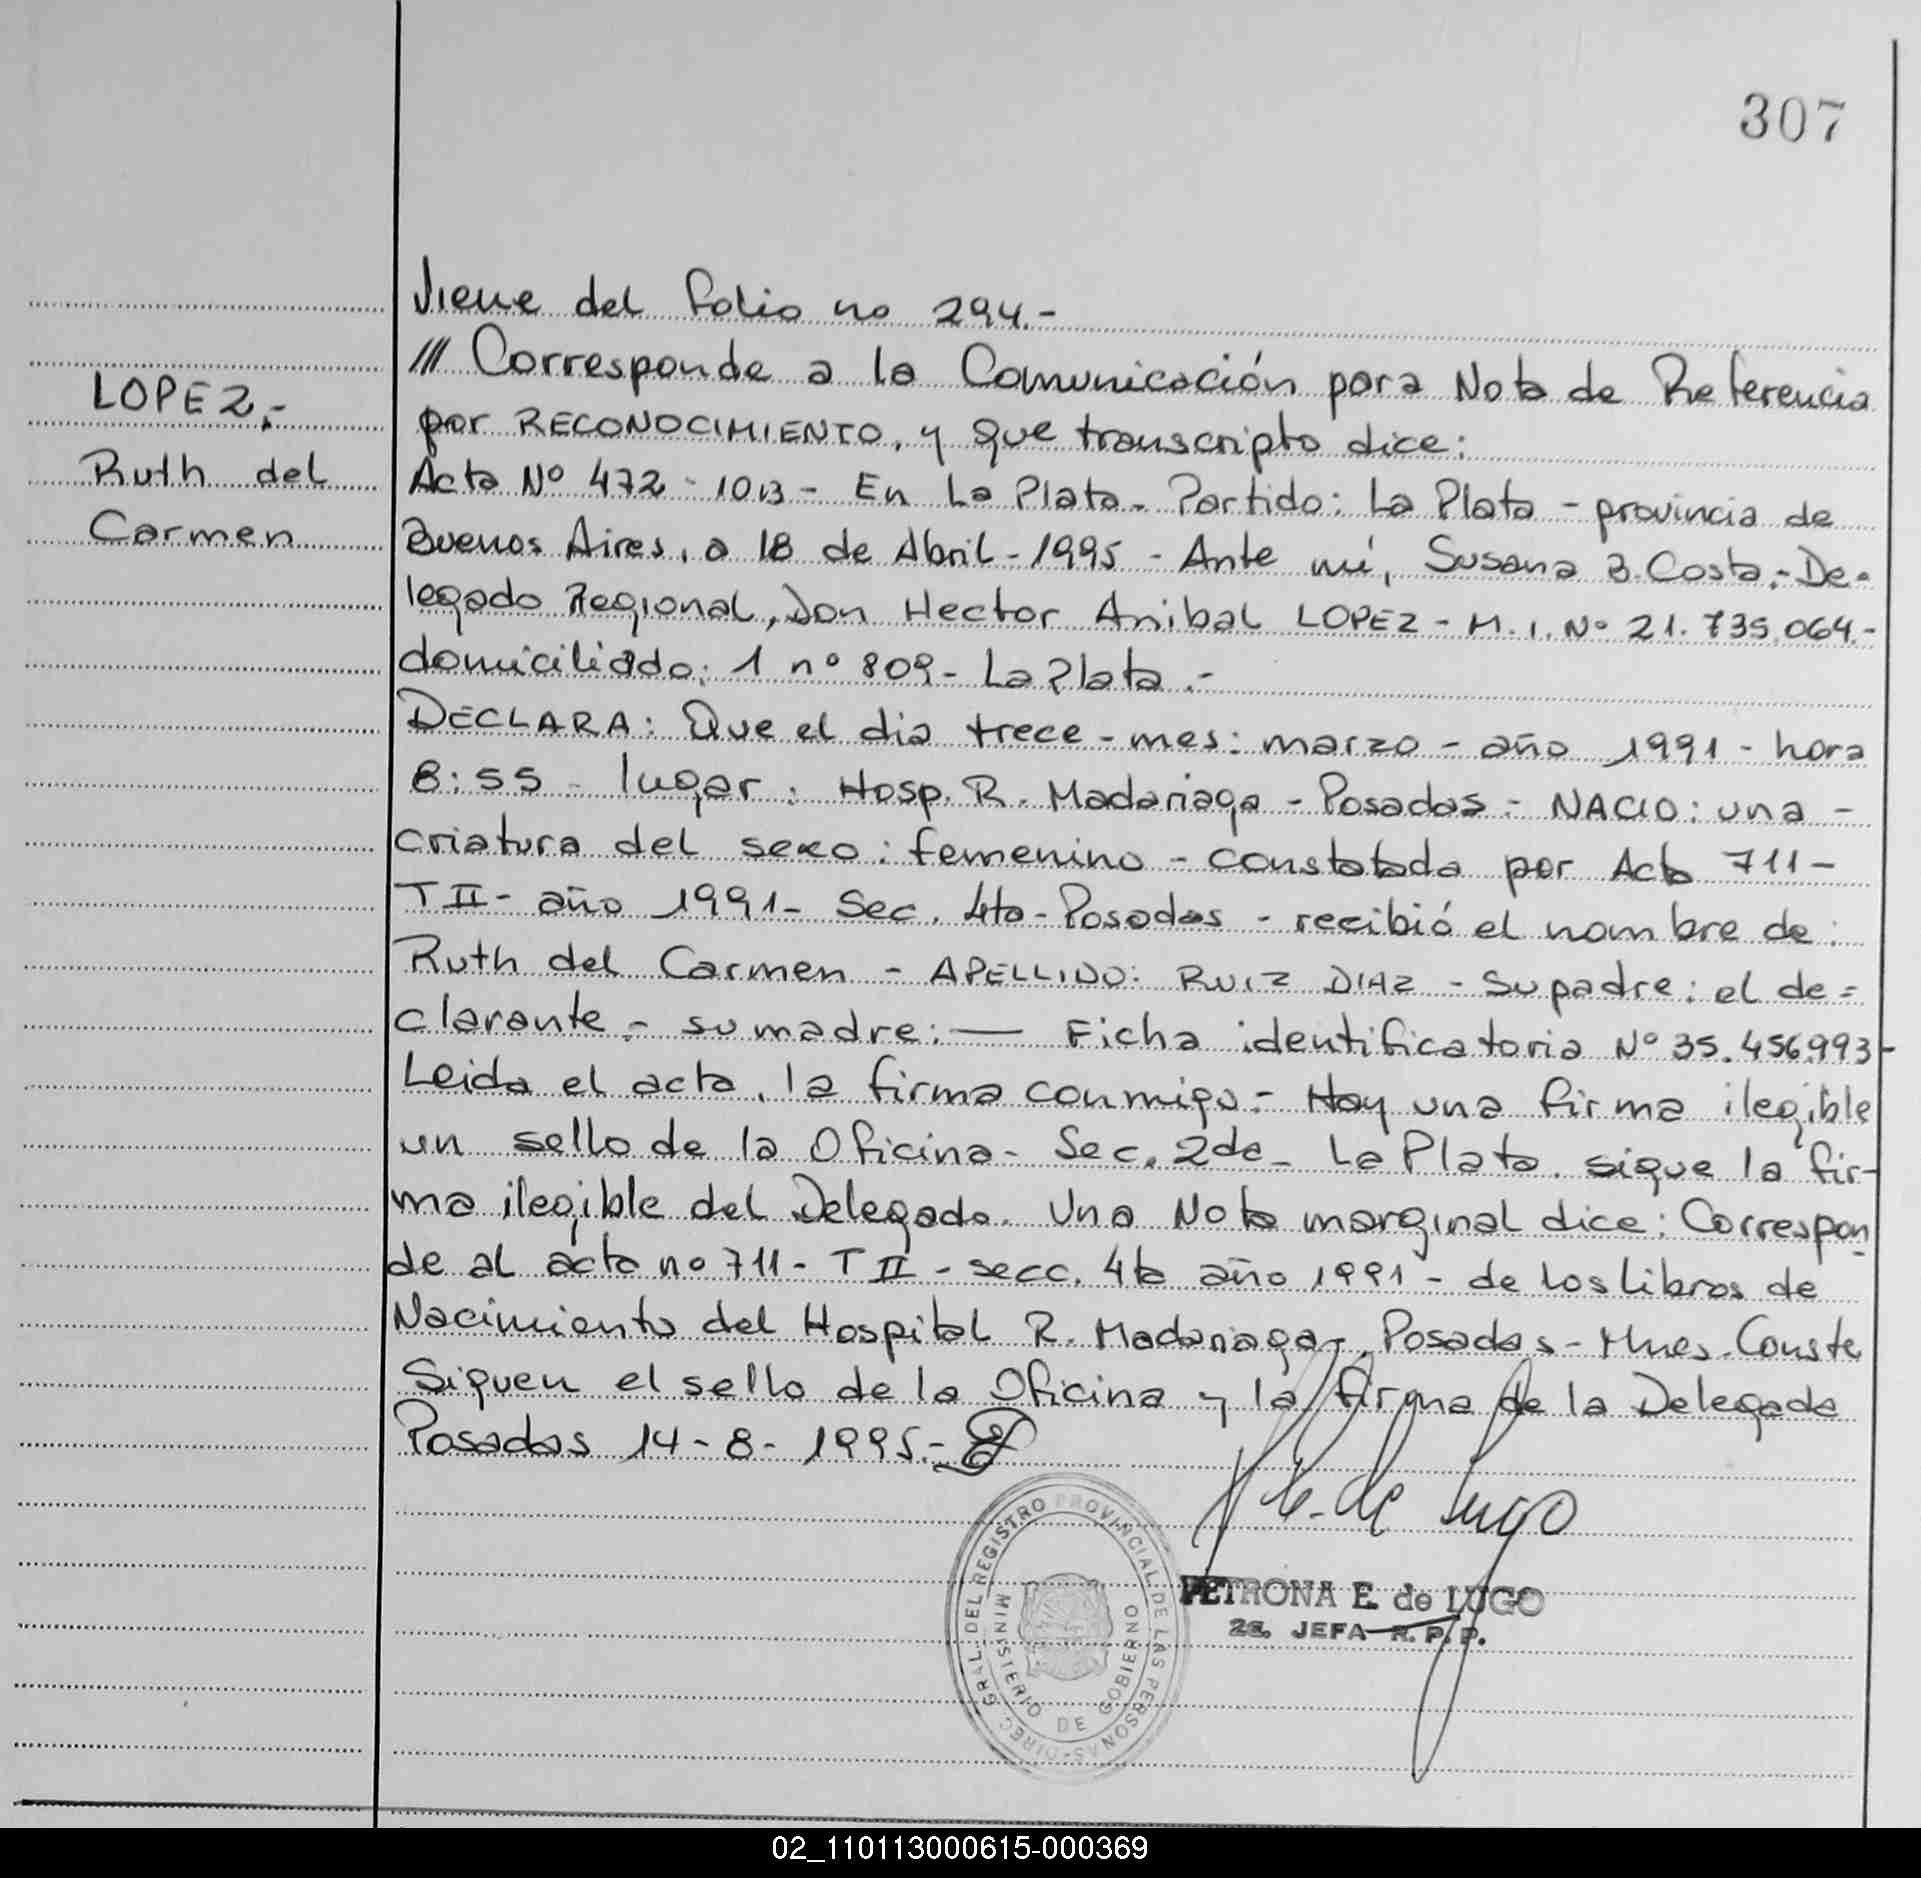 307
Viene del folio no 294.-
/// Corresponde a la Comunicación para Nota de Referencia
por RECONOCIMIENTO, y que transcripto dice:
LOPEZ.-
Ruth del
Carmen
Acta Nº 472 - 10B - En La Plata - Partido: La Plata - provincia de
Buenos Aires, a 18 de Abril - 1995 - Ante mí, Susana B. Costa.- De-
legado Regional, Don Hector Anibal LOPEZ - M. I. Nº 21.735.064.-
domiciliado: 1 nº 809 - La Plata.-
DECLARA: Que el dia trece - mes: marzo - año 1991 - hora
8:55 - lugar: Hosp. R. Madariaga - Posadas - NACIO: una -
criatura del sexo: femenino - constatada por Acta 711 -
T II - año 1991 - Sec. 4ta - Posadas - recibió el nombre de:
Ruth del Carmen - APELLIDO: RUIZ DIAZ - Su padre: el de=
clarante - su madre: — Ficha identificatoria Nº 35.456.993-
Leida el acta, la firma conmigo.- Hay una firma ilegible
un sello de la Oficina - Sec. 2da - La Plata. sigue la fir-
ma ilegible del Delegado. Una Nota marginal dice: Correspon-
de al acta no 711 - T II - secc. 4ta año 1991 - de los libros de
Nacimiento del Hospital R. Madariaga, Posadas - Mnes. Conste
Siguen el sello de la Oficina y la firma de la Delegada
Posadas 14-8-1995.-
P. E. de Lugo
PETRONA E. de LUGO
2a. JEFA R. P. P.
DIREC. GRAL. DEL REGISTRO PROVINCIAL DE LAS PERSONAS
MINISTERIO DE GOBIERNO
02_110113000615-000369